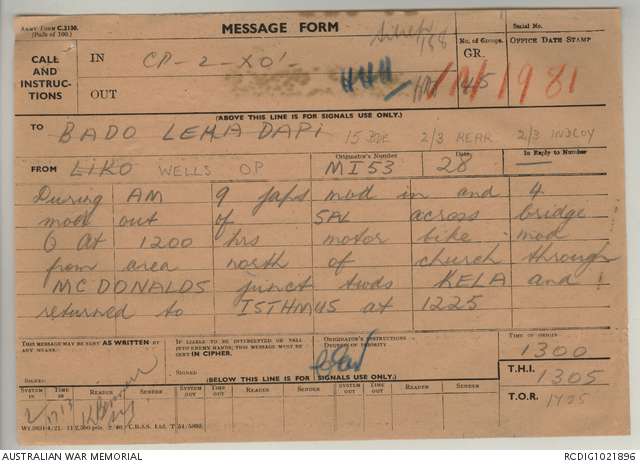 ARMY FORM C.2136.
(Pads of 100.)
MESSAGE FORM
Serial No.
CALL
AND
INSTRUC-
TIONS
IN
CP-2-XO'
No. of Groups.
GR.
45
OFFICE DATE STAMP
OUT
1/11/1981
(ABOVE THIS LINE IS FOR SIGNALS USE ONLY.)
TO
BADO LEMA DAPI 15 BDE 2/3 REAR 2/3 INDCOY
FROM
LIKO WELLS OP
Originator's Number
MI53
Date
28
In Reply to Number
During AM 9 japs mod in and 4
mod out of SAL across bridge
6 At 1200 hrs motor bike mod
from area north of church through
MCDONALDS junct twds KELA and
returned to ISTHMUS at 1225
THIS MESSAGE MAY BE SENT AS WRITTEN BY
ANY MEANS.
SIGNED
IF LIABLE TO BE INTERCEPTED OR FALL
INTO ENEMY HANDS, THIS MESSAGE MUST BE
SENT IN CIPHER.
SIGNED
ORIGINATOR'S INSTRUCTIONS
DEGREE OF PRIORITY
(BELOW THIS LINE IS FOR SIGNALS USE ONLY.)
TIME OF ORIGIN
1300
T.H.I.
1305
T.O.R.
1725
SYSTEM IN
TIME IN
READER
SENDER
SYSTEM OUT
TIME OUT
READER
SENDER
SYSTEM OUT
TIME OUT
READER
SENDER
AUSTRALIAN WAR MEMORIAL
RCDIG1021896